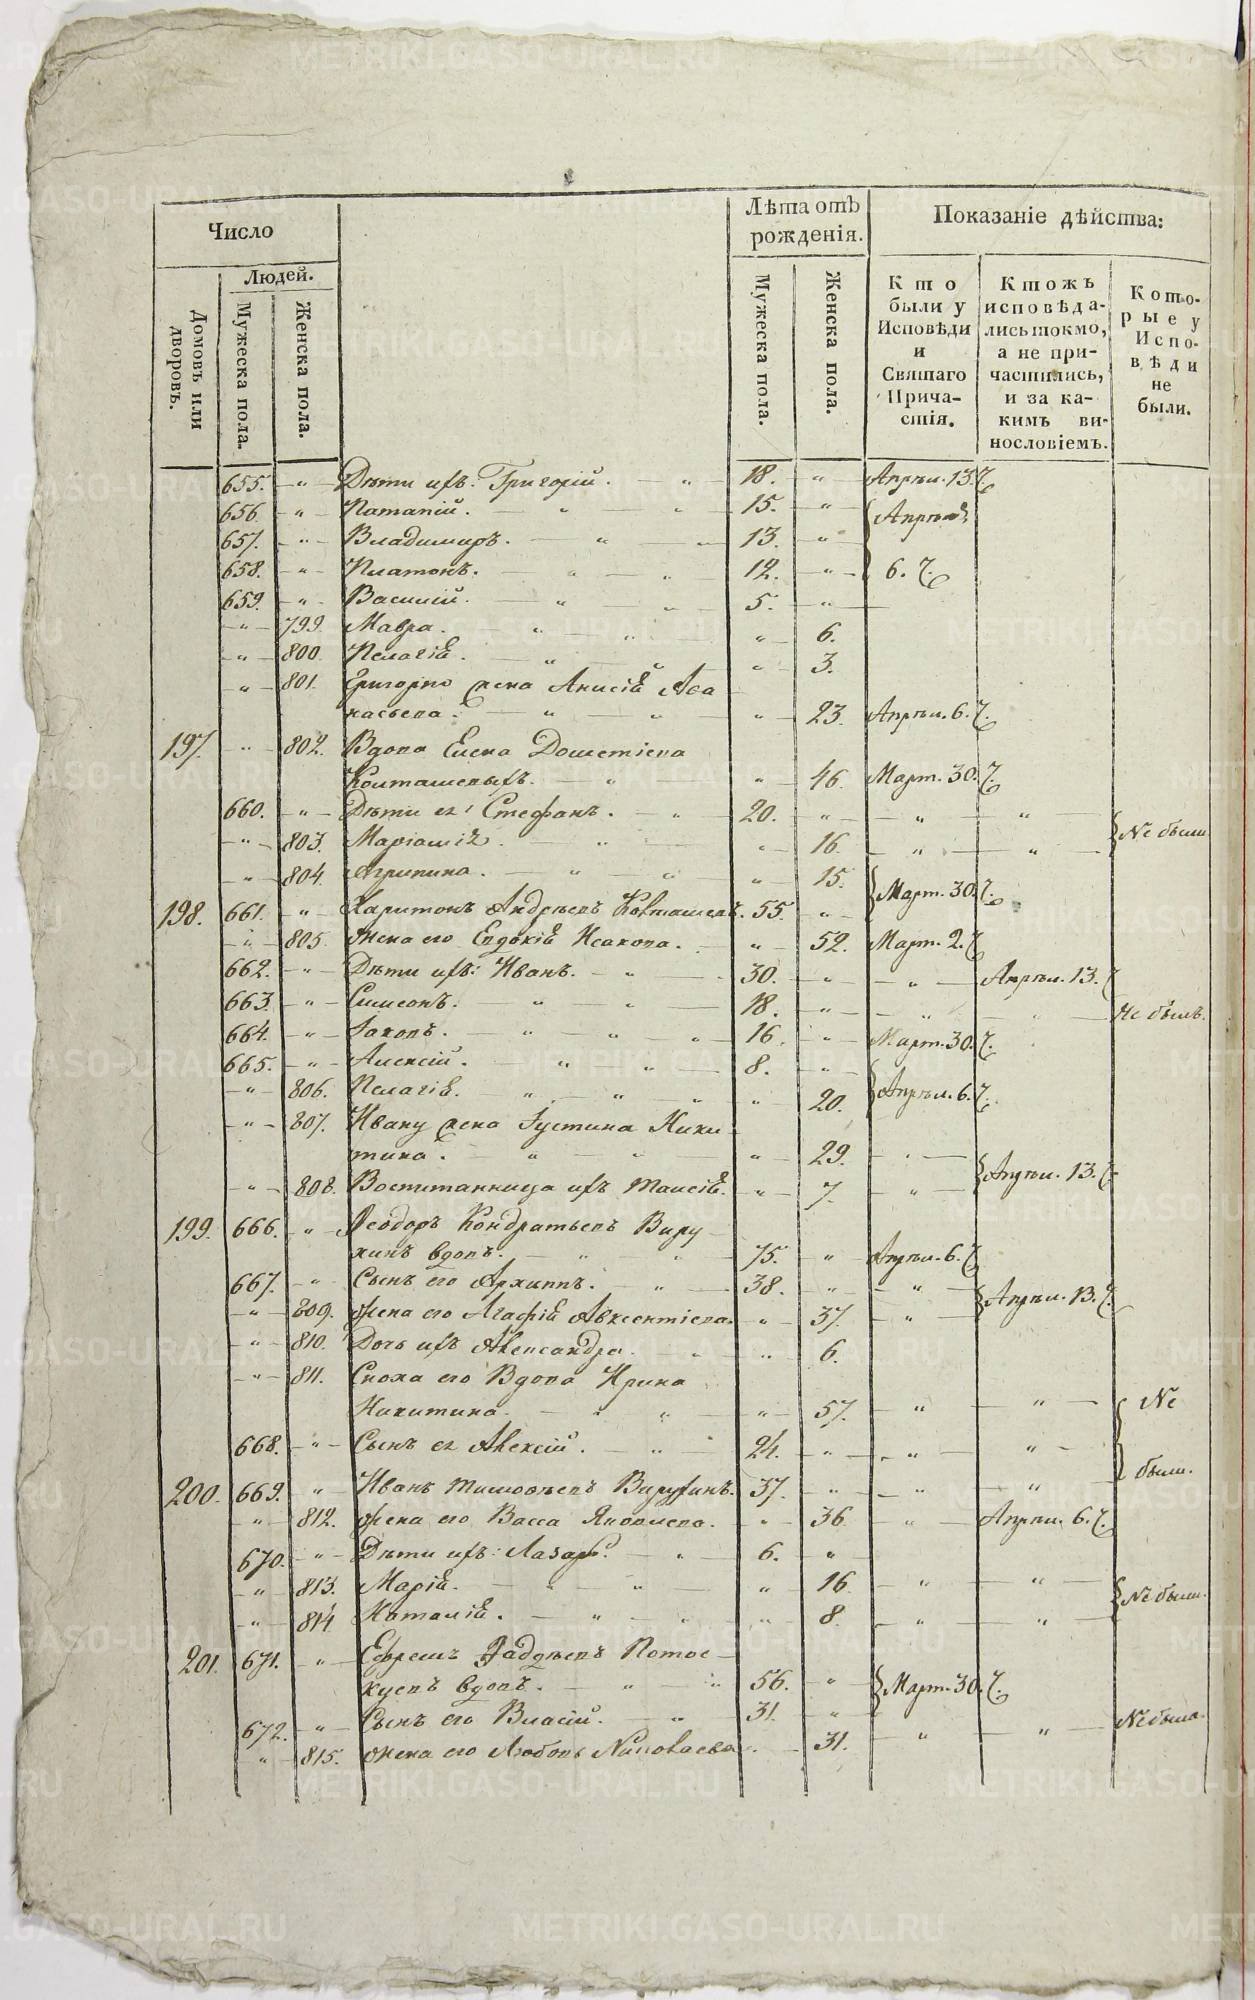 Число
Лѣта отъ рожденія.
Показаніе дѣйства:
Людей.
Домовъ или дворовъ.
Мужеска пола.
Женска пола.
Мужеска пола.
Женска пола.
Кто были у Исповѣди и Святаго Причастія.
Ктожъ исповѣдались токмо, а не причастились, и за какимъ винословіемъ.
Которые у Исповѣди не были.
655. " Дѣти ихъ: Григорій. " 18. " Апрѣл. 13.
656. " Патапій. " " 15. " Апрѣля
657. " Владимиръ. " " 13. "
658. " Платонъ. " " 12. " 6.
659. " Василій. " " 5. "
" 799. Мавра. " " " 6.
" 800. Пелагія. " " " 3.
" 801. Григорію жена Анисія Афа
насьева. " " " 23. Апрѣл. 6.
197. " 802. Вдова Елена Дометіева
Колташевыхъ. " " 46. Март. 30.
660. " Дѣти ея: Стефанъ. " 20. " " " Не были
" 803. Маріамія. " " 16. " "
" 804. Агрипина. " " " 15. Март. 30.
198. 661. " Харитонъ Андреевъ Колташевъ. 55. "
" 805. Жена его Евдокія Исакова. " 52. Март. 2.
662. " Дѣти ихъ: Иванъ. " 30. " " Апрѣл. 13.
663. " Симеонъ. " " 18. " " " Не былъ.
664. " Іаковъ. " " " 16. " Март. 30.
665. " Алексій. " " 8. "
" 806. Пелагія. " " " " 20. Апрѣл. 6.
" 807. Ивану жена Іустина Ники
тина. " " " 29. "
" 808. Воспитанница ихъ Таисія. " 7. " Апрѣл. 13.
199. 666. " Ѳеодоръ Кондратьевъ Виру
хинъ вдовъ. " " 75. " Апрѣл. 6.
667. " Сынъ его Архиппъ. " 38. " " Апрѣл. 13.
" 809. Жена его Агафія Авксентіева. " 37. "
" 810. Дочь ихъ Александра. " " 6.
" 811. Сноха его Вдова Ирина
Никитина. " " " 57. " " Не
668. " Сынъ ея Алексій. " 24. " " " были.
200. 669. " Иванъ Тимофѣевъ Вирухинъ. 37. " " "
" 812. Жена его Васса Яковлева. " 36. " Апрѣл. 6.
670. " Дѣти ихъ: Лазарь. " 6. "
" 813. Марія. " " " 16 " " Не были.
" 814 Наталія. " " " 8. " "
201. 671. " Ефремъ Ѳадѣевъ Потос
куевъ вдовъ. " " 56. " Март. 30.
672. " Сынъ его Власій. " 31. "
" 815. Жена его Любовь Николаева. 31. " " Не была.
METRIKI.GASO-URAL.RU